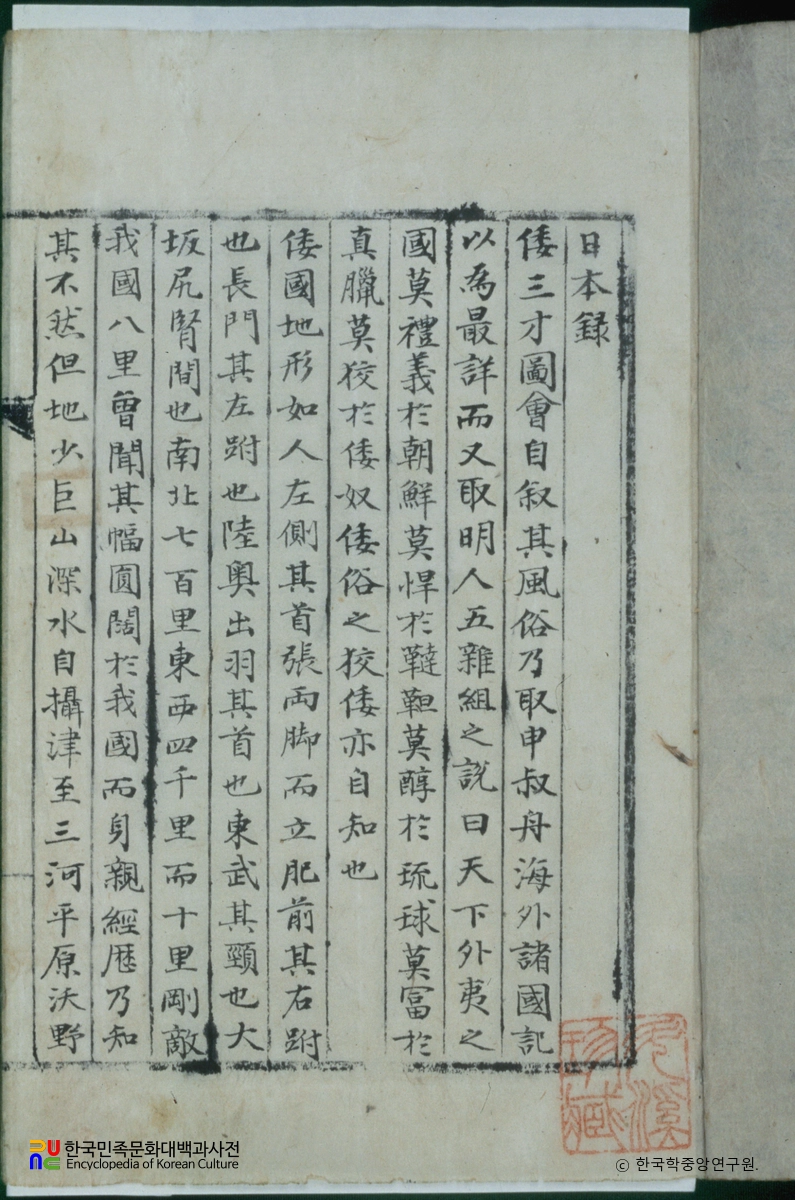 日本錄
倭三才圖會自叙其風俗乃取申叔舟海外諸國記
以爲最詳而又取明人五雜組之說曰天下外夷之
國莫禮義於朝鮮莫悍於韃靼莫醇於琉球莫富於
真臘莫狡於倭奴倭俗之狡倭亦自知也
倭國地形如人左側其首張両脚而立肥前其右跗
也長門其左跗也陸奧出羽其首也東武其頸也大
坂尻腎間也南北七百里東西四千里而十里剛敵
我國八里曾聞其幅圓闊於我國而身親經歷乃知
其不然但地少巨山深水自攝津至三河平原沃野
珍藏
한국민족문화대백과사전
Encyclopedia of Korean Culture
ⓒ 한국학중앙연구원.